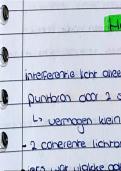 H
interferentie licht allee
puntbron door 2 s
↳ vermogen klein
- 2 coherente lichtbro